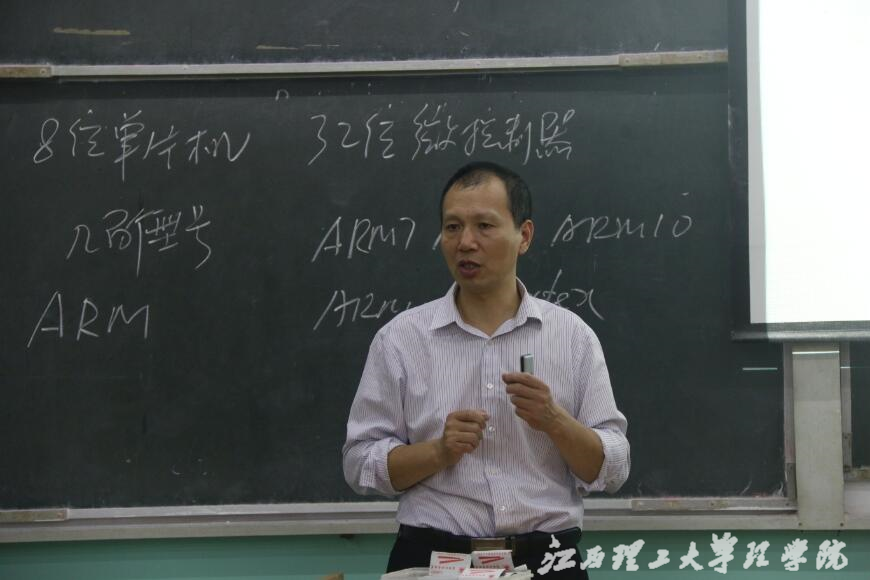 8位单片机 32位微控制器
几百种型号 ARM7 ARM10
ARM ARM tex
江西理工大学理学院